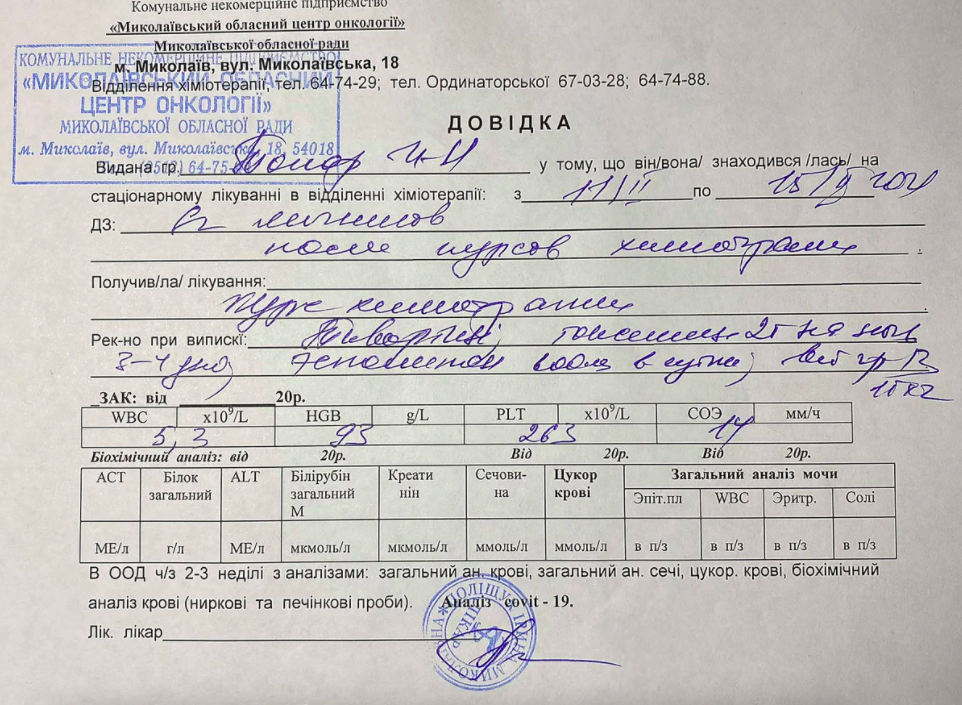 Комунальне некомерційне підприємство
«Миколаївський обласний центр онкології»
Миколаївської обласної ради
м. Миколаїв, вул. Миколаївська, 18
Відділення хіміотерапії, тел. 64-74-29; тел. Ординаторської 67-03-28; 64-74-88.
КОМУНАЛЬНЕ НЕКОМЕРЦІЙНЕ ПІДПРИЄМСТВО
«МИКОЛАЇВСЬКИЙ ОБЛАСНИЙ
ЦЕНТР ОНКОЛОГІЇ»
МИКОЛАЇВСЬКОЇ ОБЛАСНОЇ РАДИ
м. Миколаїв, вул. Миколаївська, 18, 54018
64-75
ДОВІДКА
Видана гр. у тому, що він/вона/ знаходився /лась/ на
стаціонарному лікуванні в відділенні хіміотерапії: з 11/II по
ДЗ:
после курсов химиотерапии
Получив/ла/ лікування:
Курс химиотерапии
Рек-но при виписці:
3-4 в сутки
ЗАК: від 20р.
WBC х10⁹/L HGB g/L PLT х10⁹/L СОЭ мм/ч
5,3 93 263 14
Біохімічний аналіз: від 20р. Від 20р. Від 20р.
АСТ Білок загальний ALT Білірубін загальний М Креати нін Сечови-на Цукор крові Загальний аналіз мочи
Эпіт.пл WBC Эритр. Солі
МЕ/л г/л МЕ/л мкмоль/л мкмоль/л ммоль/л ммоль/л в п/з в п/з в п/з в п/з
В ООД ч/з 2-3 неділі з аналізами: загальний ан. крові, загальний ан. сечі, цукор. крові, біохімічний
аналіз крові (ниркові та печінкові проби). Аналіз covit - 19.
Лік. лікар
ПОЛІЩУК ІРИНА МИКОЛАЇВНА
ЛІКАР